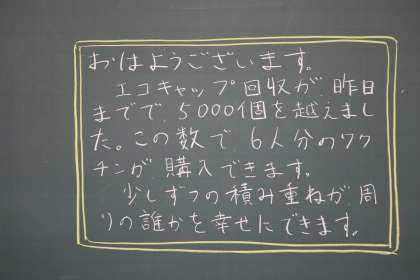 おはようございます。
エコキャップ回収が、昨日
までで、5000個を越えまし
た。この数で、6人分のワク
チンが、購入できます。
少しずつの積み重ねが、周
りの誰かを幸せにできます。